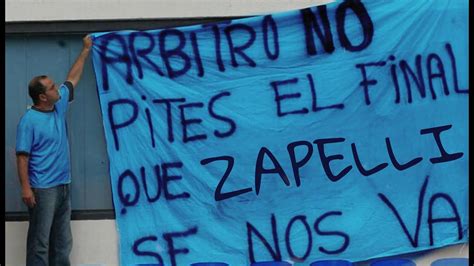 ARBITRO NO
PITES EL FINAL
QUE ZAPELLI
SE NOS VA